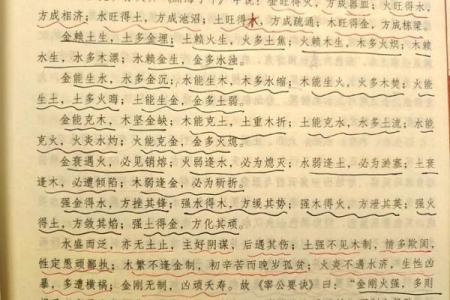 金旺得火，方成器皿；火旺得水，
方成相济；水旺得土，方成池沼；土旺得木，方成疏通；木旺得金，方成栋梁。
金赖土生，土多金埋；土赖火生，火多土焦；火赖木生，木多火炽；木赖
水生，水多木漂；水赖金生，金多水浊。
金能生水，水多金沉；水能生木，木多水缩；木能生火，火多木焚；火能
生土，土多火晦；土能生金，金多土弱。
金能克木，木坚金缺；木能克土，土重木折；土能克水，水多土流；水能
克火，火炎水灼；火能克金，金多火熄。
金衰遇火，必见销熔；火弱逢水，必为熄灭；水弱逢土，必为淤塞；土衰
逢木，必遭倾陷；木弱逢金，必为斫折。
强金得水，方挫其锋；强水得木，方缓其势；强木得火，方泄其英；强火
得土，方敛其焰；强土得金，方化其顽。
水盛而泛，亦无土止，主好阴谋，后遇其伤；土强不见木制，情多欺闵，
性定愚顽鄙执；木繁不逢金制，初辛苦而晚岁孤贫；火炎不遇水济，生性凶
暴，多遭横祸；金刚无制，凶顽夭寿。故《宰公要诀》曰：“金刚火强，多则